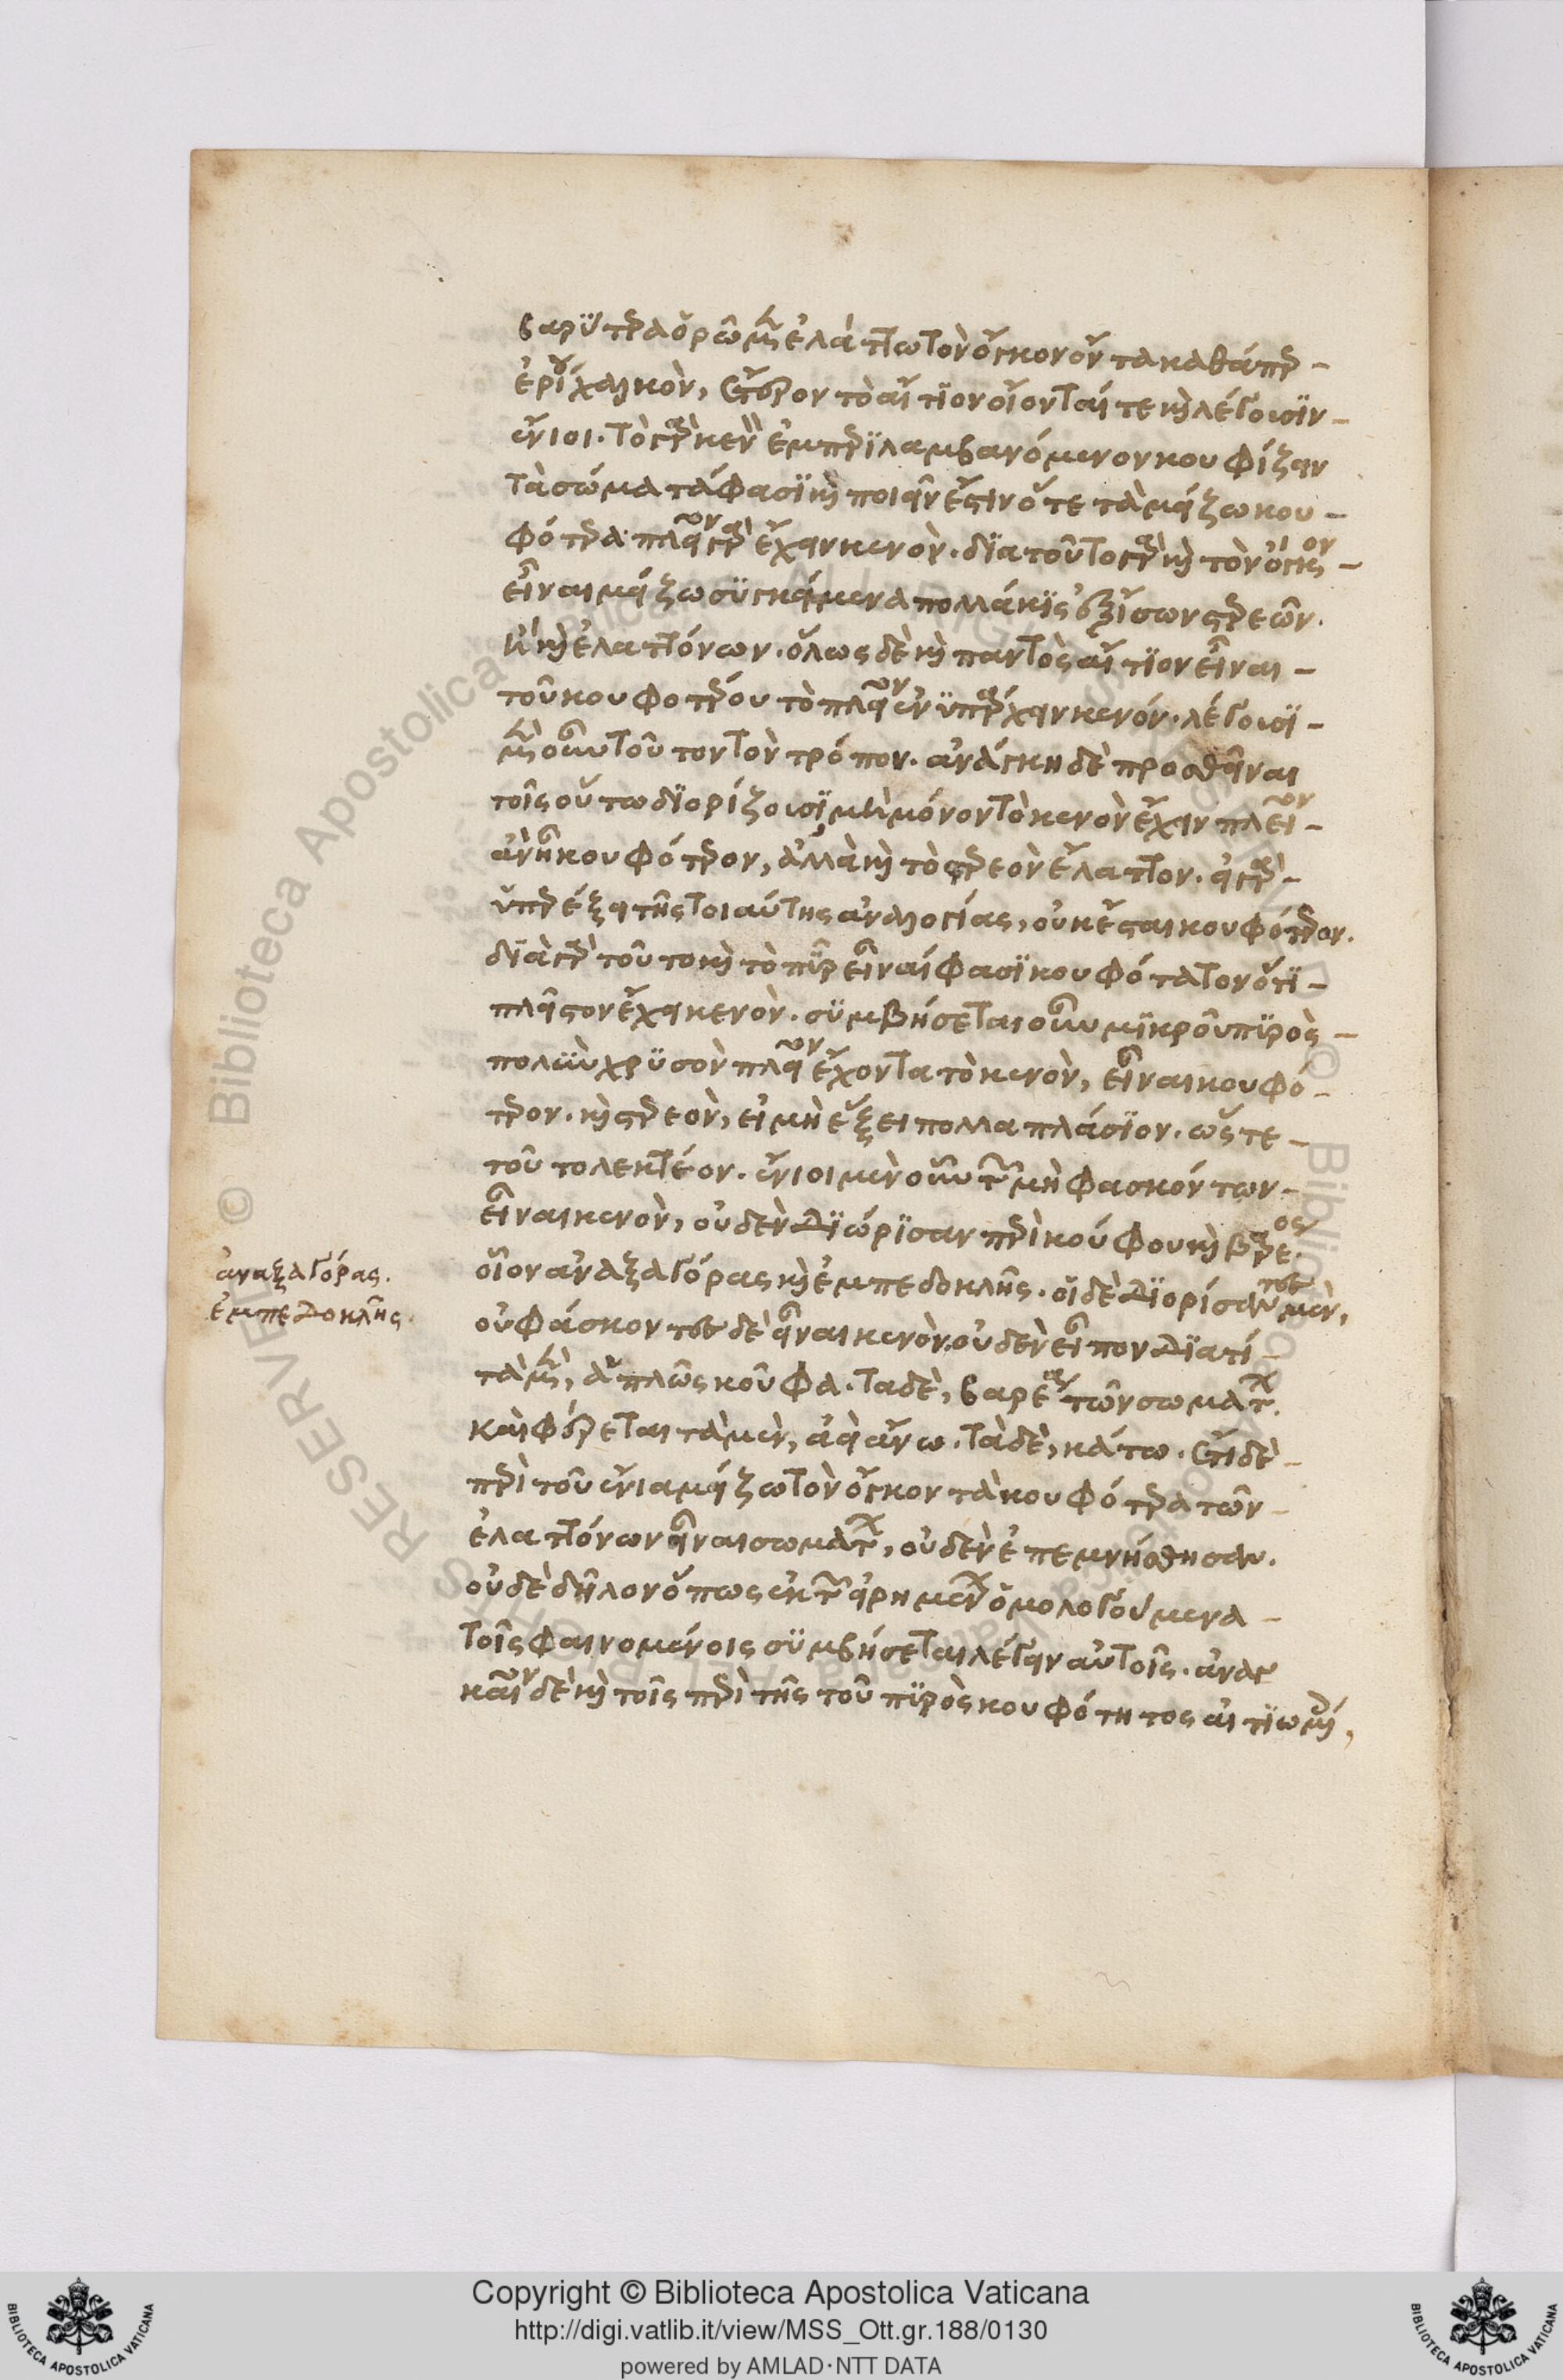 βαρύτερα ὁρῶμεν ἐλάττω τὸν ὄγκον ὄντα καθάπερ
ἐρίου χαλκὸν, ἕτερον τὸ αἴτιον οἴονταί τε καὶ λέγουσιν
ἔνιοι. τὸ γὰρ κενὸν ἐμπεριλαμβανόμενον κουφίζειν
τὰ σώματά φασι καὶ ποιεῖν ἔστιν ὅτε τὰ μείζω κου-
φότερα· πλεῖον γὰρ ἔχειν κενόν. διὰ τοῦτο γὰρ καὶ τὸν ὄγκον
εἶναι μείζω συγκείμενα πολλάκις ἐξ ἴσων στερεῶν.
ἢ καὶ ἐλαττόνων. ὅλως δὲ καὶ παντὸς αἴτιον εἶναι
τοῦ κουφοτέρου τὸ πλεῖον ἐνυπάρχειν κενόν. λέγουσι
μὲν οὖν τοῦτον τὸν τρόπον. ἀνάγκη δὲ προσθεῖναι
τοῖς οὕτω διορίζουσι μὴ μόνον τὸ κενὸν ἔχειν πλεῖον
ἂν ᾖ κουφότερον, ἀλλὰ καὶ τὸ στερεὸν ἔλαττον. εἰ γὰρ
ὑπερέξει τῆς τοιαύτης ἀναλογίας, οὐκ ἔσται κουφότερον.
διὰ γὰρ τοῦτο καὶ τὸ πῦρ εἶναί φασι κουφότατον ὅτι
πλεῖστον ἔχει κενόν. συμβήσεται οὖν μικροῦ πυρὸς
πολὺν χρυσὸν πλεῖον ἔχοντα τὸ κενὸν, εἶναι κουφό-
τερον. καὶ στερεὸν, εἰ μὴ ἕξει πολλαπλάσιον. ὥστε
τοῦτο λεκτέον. ἔνιοι μὲν οὖν τῶν μὴ φασκόντων
εἶναι κενὸν, οὐδὲν διώρισαν περὶ κούφου καὶ βαρέος.
οἷον ἀναξαγόρας καὶ ἐμπεδοκλῆς. οἱ δὲ διορίσαντες μὲν,
οὐ φάσκοντες δὲ εἶναι κενὸν. οὐδὲν εἶπον διατί
τὰ μὲν, ἁπλῶς κοῦφα. τὰ δὲ, βαρέα τῶν σωμάτων.
καὶ φέρεται τὰ μὲν, ἀεὶ ἄνω. τὰ δὲ, κάτω. ἔτι δὲ
περὶ τοῦ ἔνια μείζω τὸν ὄγκον τὰ κουφότερα τῶν
ἐλαττόνων εἶναι σωμάτων, οὐδὲν ἐπεμνήσθησαν.
οὐδὲ δῆλον ὅπως ἐκ τῶν εἰρημένων ὁμολογούμενα
τοῖς φαινομένοις συμβήσεται λέγειν αὐτοῖς. ἀναγ
καῖον δὲ καὶ τοῖς περὶ τῆς τοῦ πυρὸς κουφότητος αἰτιωμένοις,
ἀναξαγόρας.
ἐμπεδοκλῆς.
Copyright © Biblioteca Apostolica Vaticana
http://digi.vatlib.it/view/MSS_Ott.gr.188/0130
powered by AMLAD·NTT DATA
BIBLIOTECA APOSTOLICA VATICANA
BIBLIOTECA APOSTOLICA VATICANA